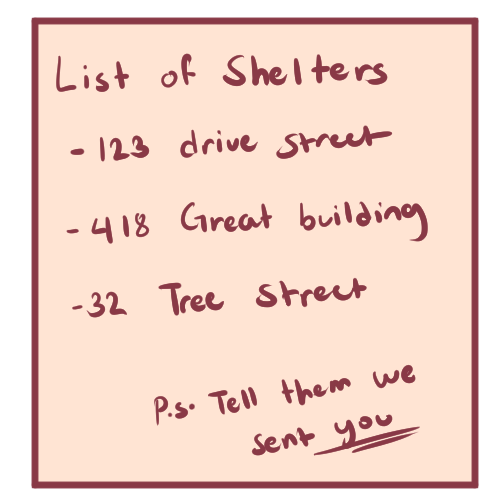 List of Shelters
- 123 drive street
- 418 Great building
- 32 Tree Street
P.s. Tell them we
sent you